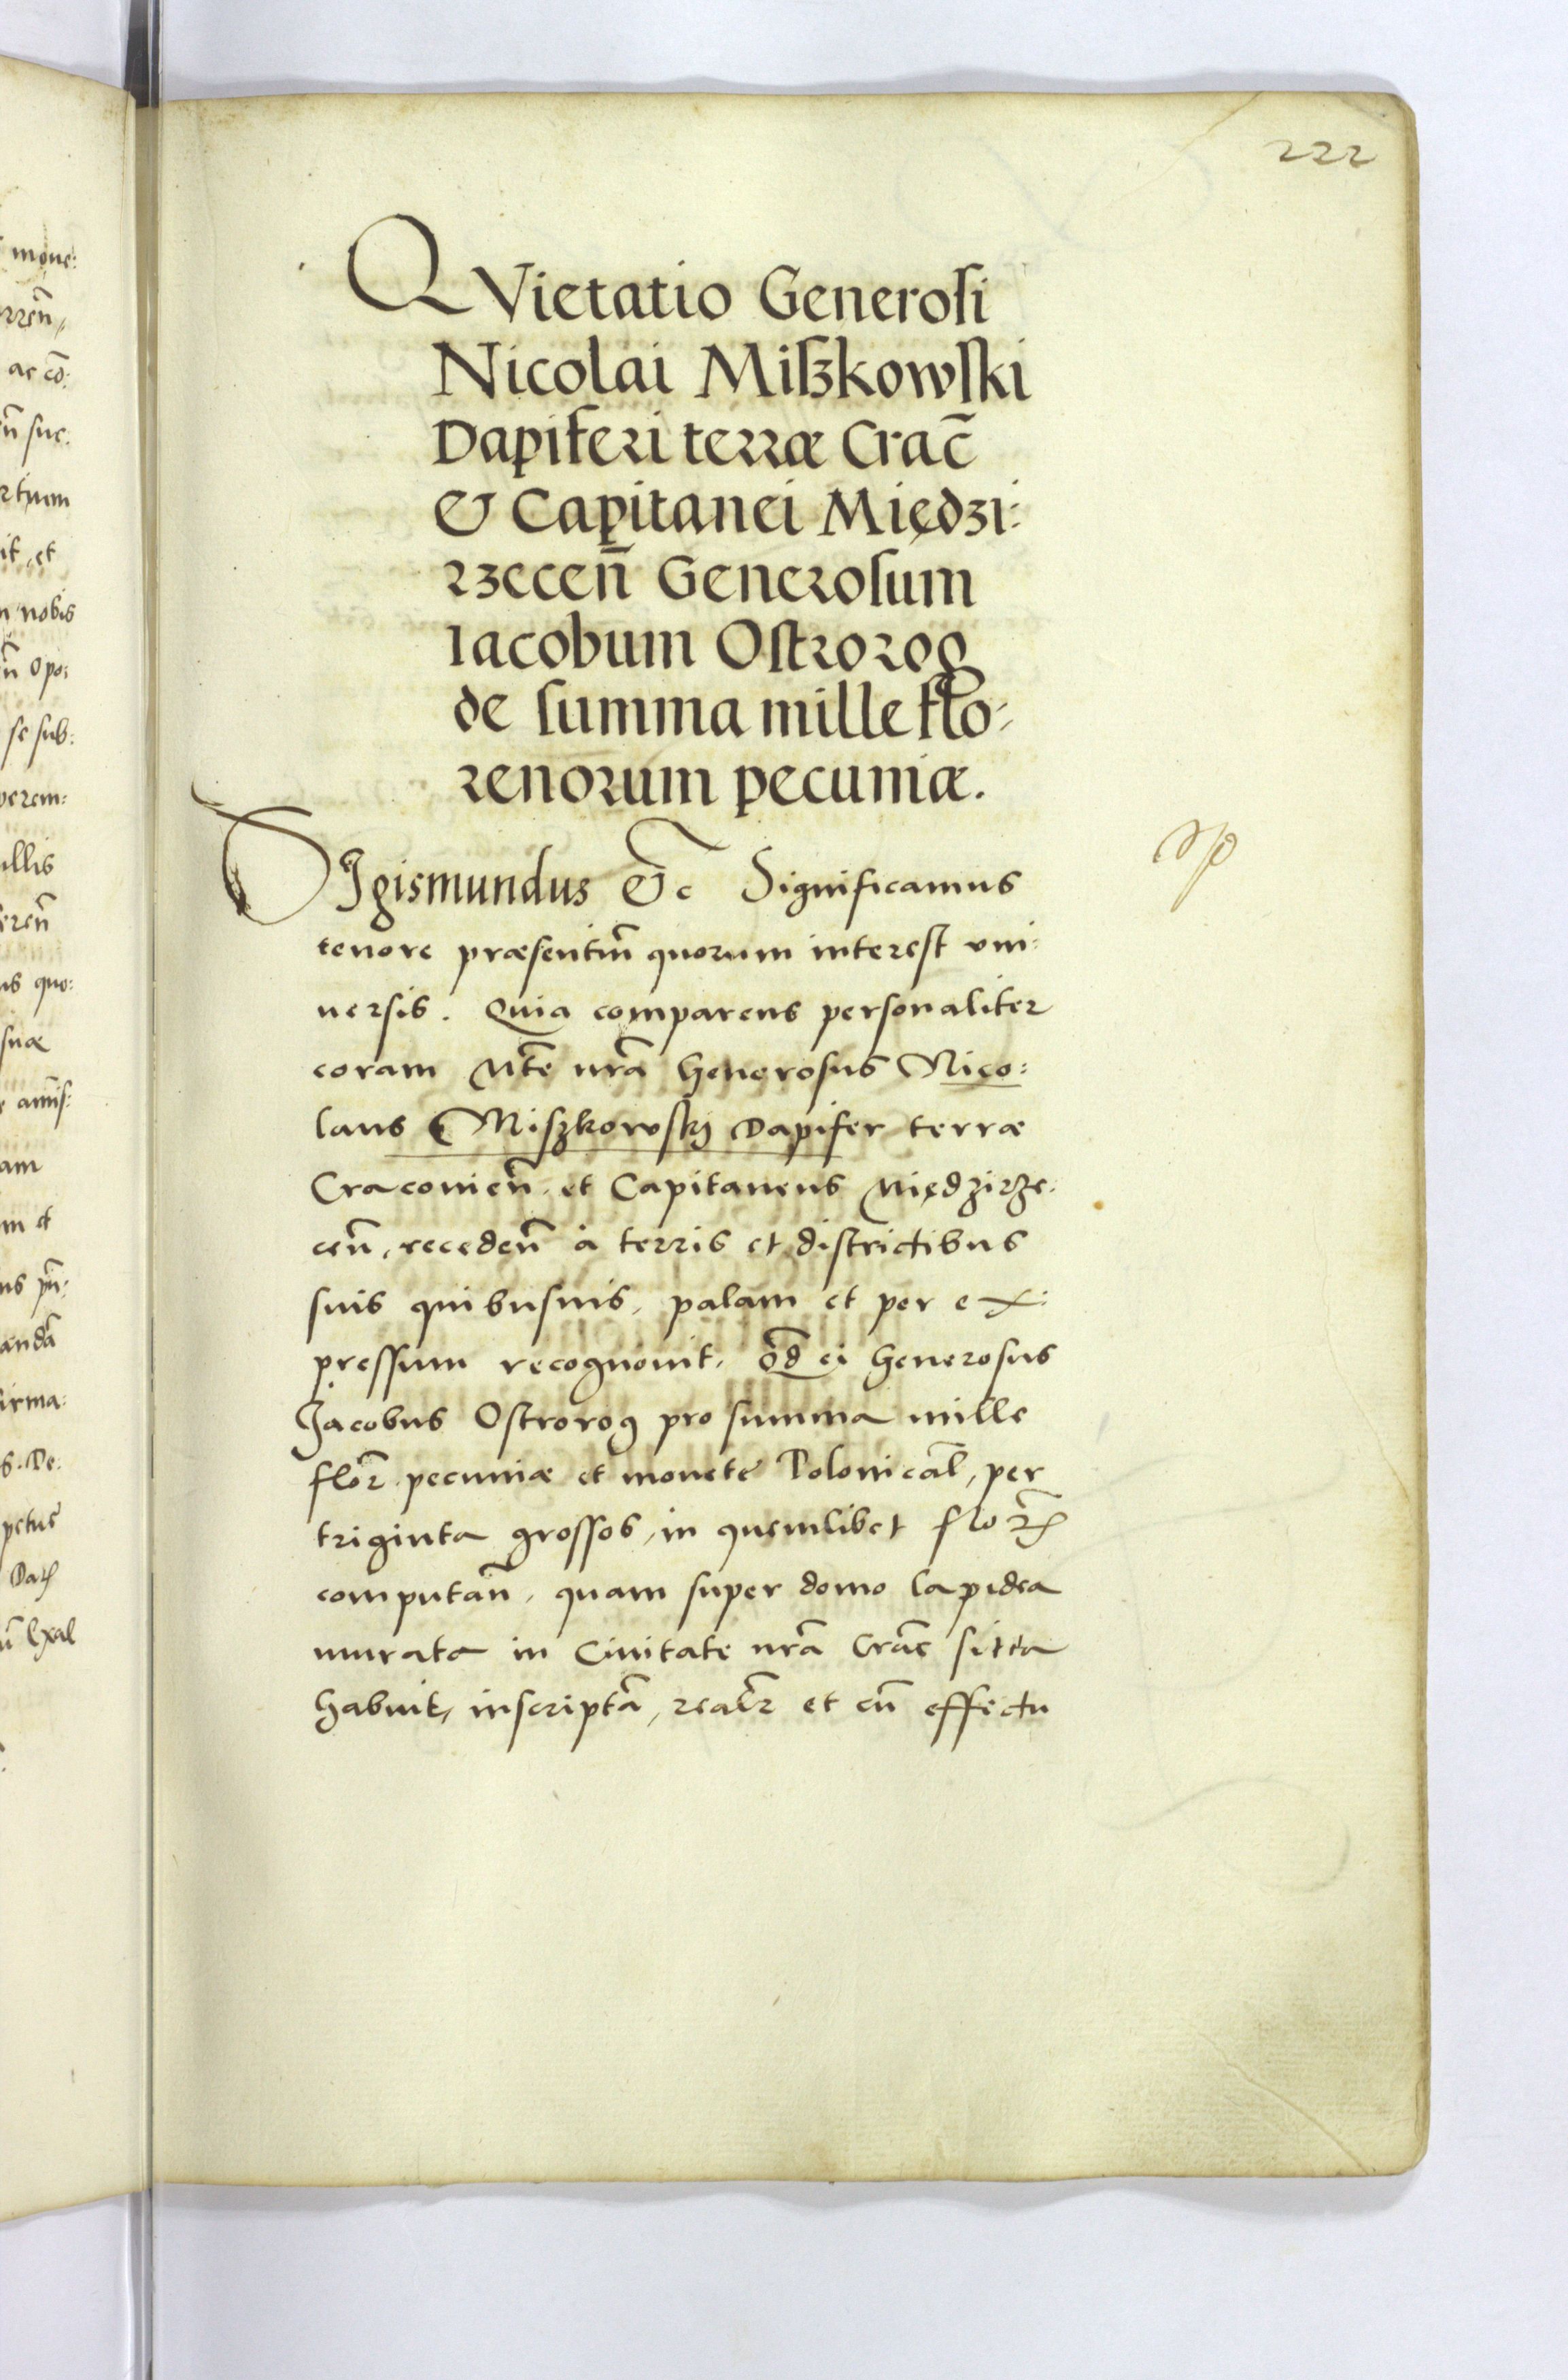 222
QVietatio Generosi
Nicolai Miszkowski
Dapiferi terræ Crac̃
& Capitanei Międzi:
rzecceñ Generosum
Iacobum Ostrorog
de summa mille flo:
renorum pecuniæ.
SIgismundus &c Significamus
tenore præsentiũ quorum interest vni:
uersis. Quia comparens personaliter
coram Mte nrã Generosus Nico:
laus Miszkowskij Dapifer terræ
Cracovieñ. et Capitaneus Międzirze:
ceñ, recedeñ à terris et districtibus
suis quibusuis, palam et per ex:
pressum recognouit, qd ei Generosus
Jacobus Ostrorog pro summa mille
flor. pecuniæ et monete Polonicał, per
triginta grossos, in quemlibet flor
computañ, quam super domo lapidea
murata in Ciuitate nrã Crac̃ sitta
habuit, inscriptã, realr et cũ effectu
mone:
ac cõ:
ñ suc:
rtuum
it, et
nobis
opo:
se sub:
verem:
ullis
ereñ
us quo:
suæ
am
m et
andã
irma:
s. De:
petue
Dat